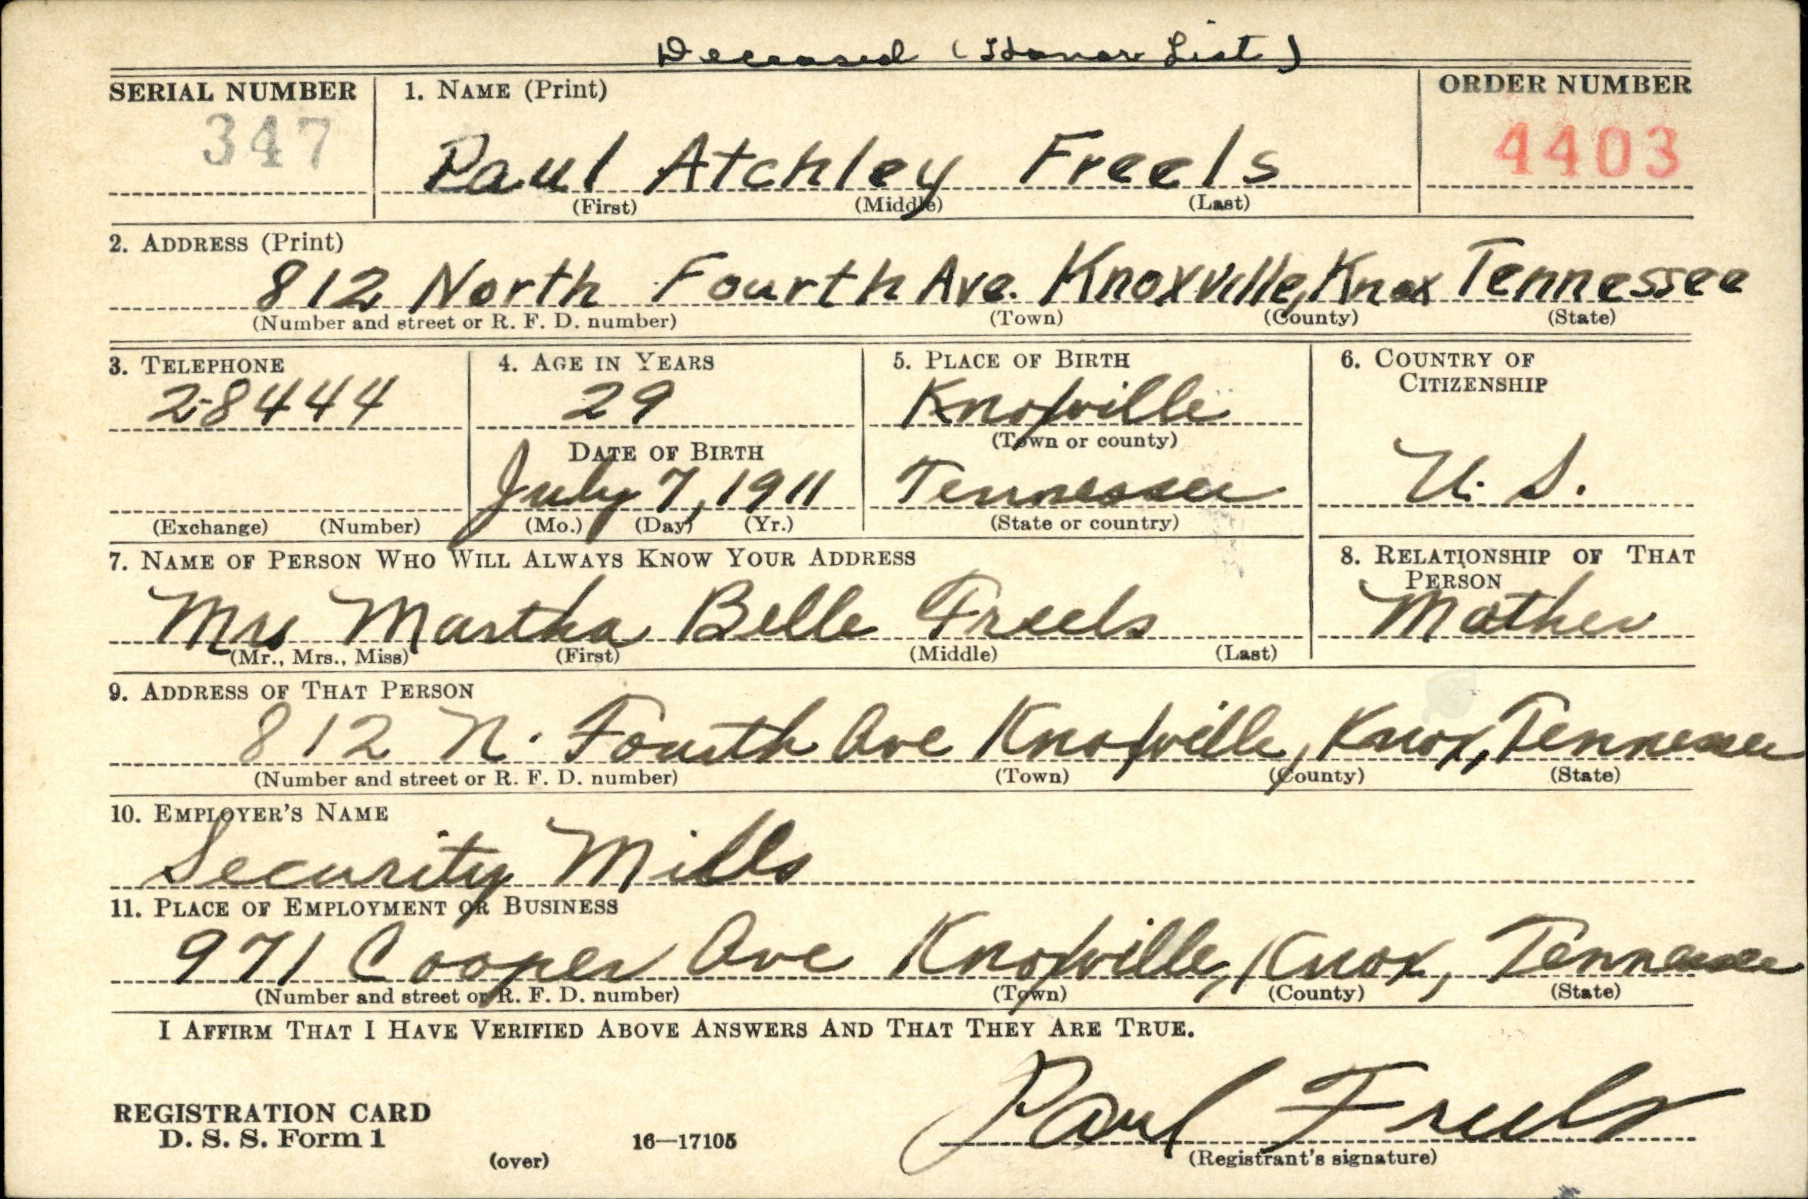 Deceased (Honor List)
SERIAL NUMBER 1. NAME (Print) ORDER NUMBER
347 Paul Atchley Freels 4403
(First) (Middle) (Last)
2. ADDRESS (Print)
812 North Fourth Ave. Knoxville, Knox Tennessee
(Number and street or R. F. D. number) (Town) (County) (State)
3. TELEPHONE 4. AGE IN YEARS 5. PLACE OF BIRTH 6. COUNTRY OF
CITIZENSHIP
2-8444 29 Knoxville
(Town or county)
DATE OF BIRTH
July 7, 1911 Tennessee U. S.
(Exchange) (Number) (Mo.) (Day) (Yr.) (State or country)
7. NAME OF PERSON WHO WILL ALWAYS KNOW YOUR ADDRESS 8. RELATIONSHIP OF THAT
PERSON
Mrs Martha Belle Freels Mother
(Mr., Mrs., Miss) (First) (Middle) (Last)
9. ADDRESS OF THAT PERSON
812 N. Fourth Ave Knoxville, Knox, Tennessee
(Number and street or R. F. D. number) (Town) (County) (State)
10. EMPLOYER'S NAME
Security Mills
11. PLACE OF EMPLOYMENT OR BUSINESS
971 Cooper Ave Knoxville, Knox, Tennessee
(Number and street or R. F. D. number) (Town) (County) (State)
I AFFIRM THAT I HAVE VERIFIED ABOVE ANSWERS AND THAT THEY ARE TRUE.
Paul Freels
REGISTRATION CARD
D. S. S. Form 1 16—17105
(over) (Registrant's signature)